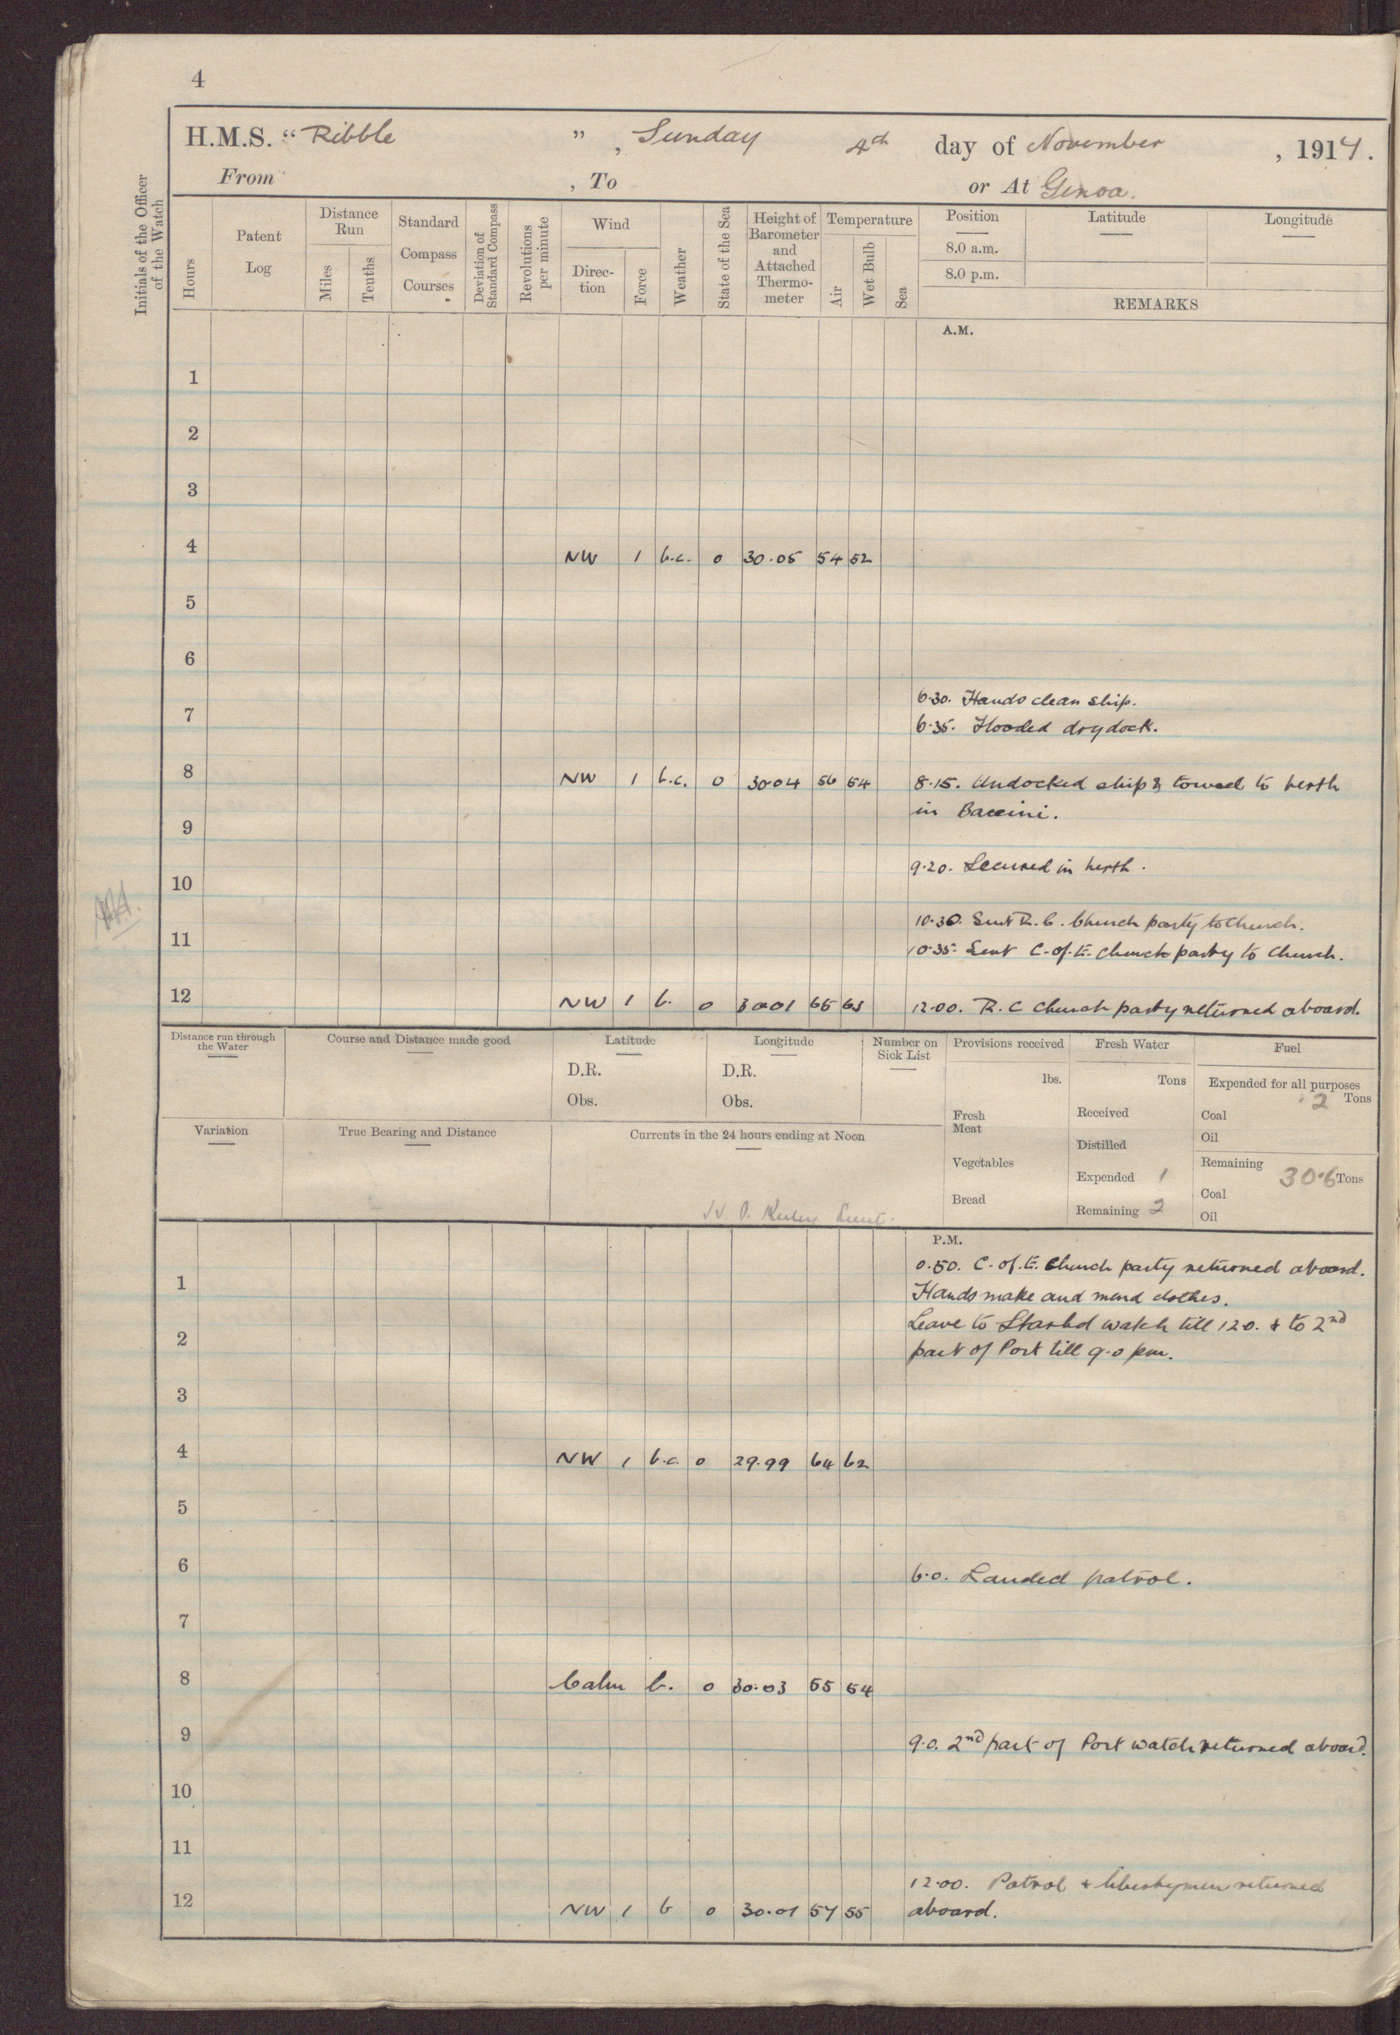 4
H.M.S. “ Ribble ” , Sunday 4th day of November , 1917.
From , To or At Genoa.
Initials of the Officer of the Watch
Hours
Patent Log
Distance Run
Miles
Tenths
Standard Compass Courses
Deviation of Standard Compass
Revolutions per minute
Wind
Direc-tion
Force
Weather
State of the Sea
Height of Barometer and Attached Thermo-meter
Temperature
Air
Wet Bulb
Sea
Position Latitude Longitude
8.0 a.m.
8.0 p.m.
REMARKS
A.M.
1
2
3
4 NW 1 b.c. 0 30.05 54 52
5
6
6.30. Hands clean ship.
7
6.35. Flooded dry dock.
8 NW 1 b.c. 0 30.04 56 54 8.15. Undocked ship & towed to berth
in Baccini.
9
9.20. Secured in berth.
10
10.30. Sent R.C. Church party to Church.
11
10.35. Sent C. of E. Church party to Church.
12 NW 1 b. 0 3001 65 63 12.00. R.C Church party returned aboard.
Distance run through the Water
Course and Distance made good
Latitude
D.R.
Obs.
Longitude
D.R.
Obs.
Number on Sick List
Provisions received
lbs.
Fresh Meat
Vegetables
Bread
Fresh Water
Tons
Received
Distilled
Expended 1
Remaining 2
Fuel
Expended for all purposes
2 Tons
Coal
Oil
Remaining 30.6 Tons
Coal
Oil
Variation
True Bearing and Distance
Currents in the 24 hours ending at Noon
Lieut.
P.M.
0.50. C. of E. Church party returned aboard.
1
Hands make and mend clothes.
Leave to Starbd watch till 12.0. & to 2nd
2
part of Port till 9.0 pm.
3
4 NW 1 b.c 0 29.99 64 62
5
6 6.0. Landed patrol.
7
8 Calm b. 0 30.03 55 54
9 9.0. 2nd part of Port watch returned aboard.
10
11
12.00. Patrol & libertymen returned
12 NW 1 b 0 30.01 57 55 aboard.